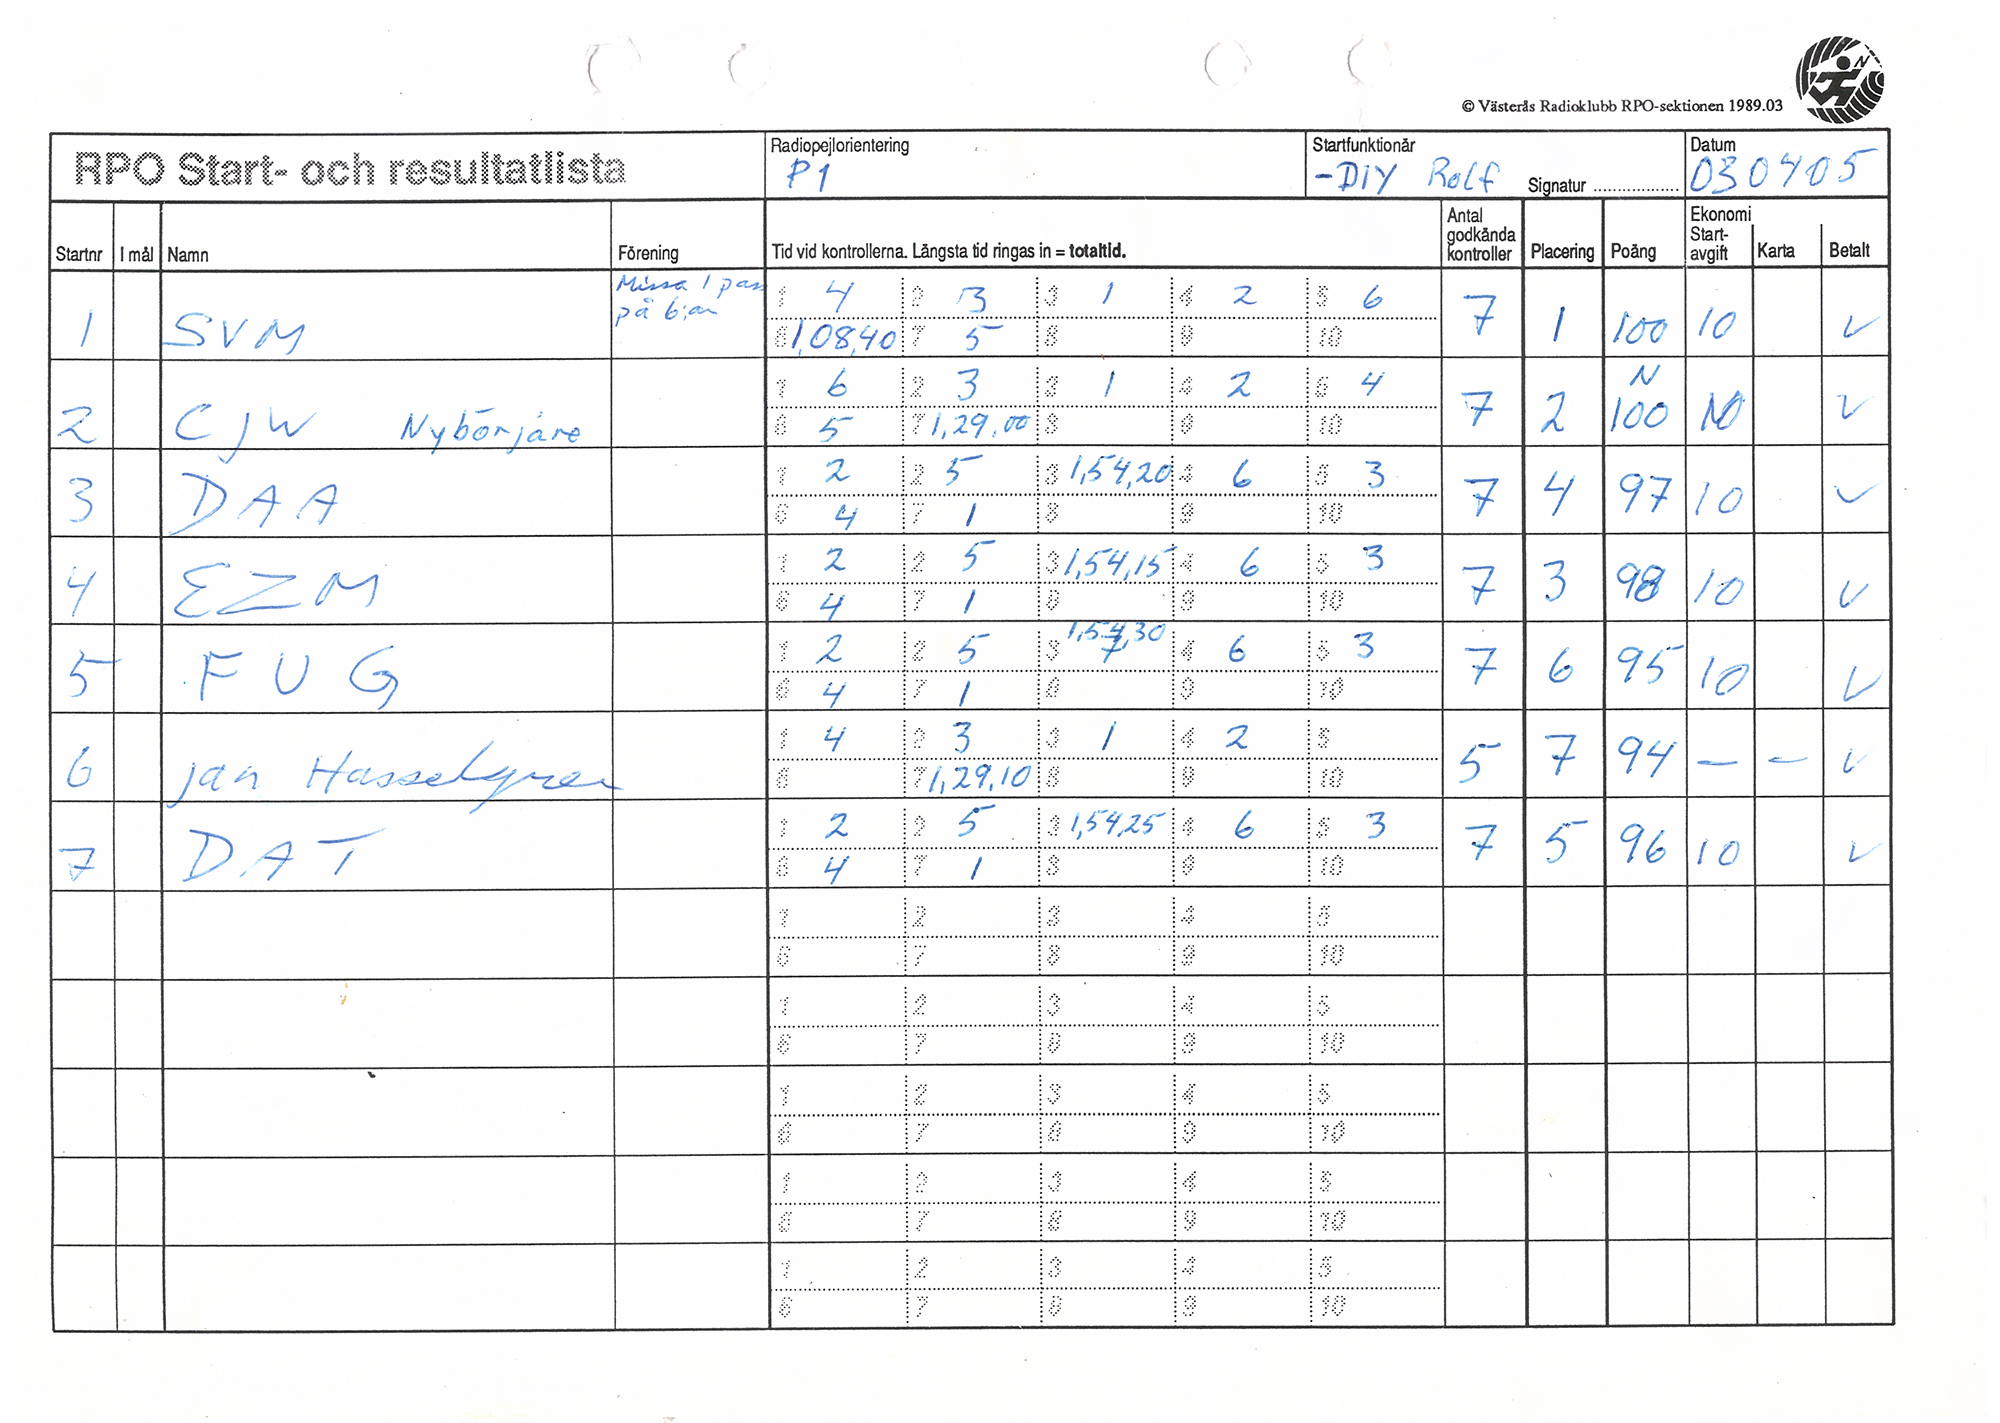 © Västerås Radioklubb RPO-sektionen 1989.03
N
RPO Start- och resultatlista
Radiopejlorientering
P1
Startfunktionär
-DIY Rolf Signatur ..................
Datum
030405
Startnr I mål Namn Förening Tid vid kontrollerna. Längsta tid ringas in = totaltid. Antal godkända kontroller Placering Poäng Ekonomi Start-avgift Karta Betalt
Missa 1 pass
på 6:an
1 4 2 3 3 1 4 2 5 6
1 SVM 7 1 100 10 V
6 1,08,40 7 5 8 9 10
1 6 2 3 3 1 4 2 5 4 N
2 CJW Nybörjare 7 2 100 10 V
6 5 7 1,29,00 8 9 10
1 2 2 5 3 1,54,20 4 6 5 3
3 DAA 7 4 97 10 V
6 4 7 1 8 9 10
1 2 2 5 3 1,54,15 4 6 5 3
4 EZM 7 3 98 10 V
6 4 7 1 8 9 10
1,54,30
1 2 2 5 3 7 4 6 5 3
5 FUG 7 6 95 10 V
6 4 7 1 8 9 10
1 4 2 3 3 1 4 2 5
6 Jan Hasselgren 5 7 94 - - V
6 7 1,29,10 8 9 10
1 2 2 5 3 1,54,25 4 6 5 3
7 DAT 7 5 96 10 V
6 4 7 1 8 9 10
1 2 3 4 5
6 7 8 9 10
1 2 3 4 5
6 7 8 9 10
1 2 3 4 5
6 7 8 9 10
1 2 3 4 5
6 7 8 9 10
1 2 3 4 5
6 7 8 9 10